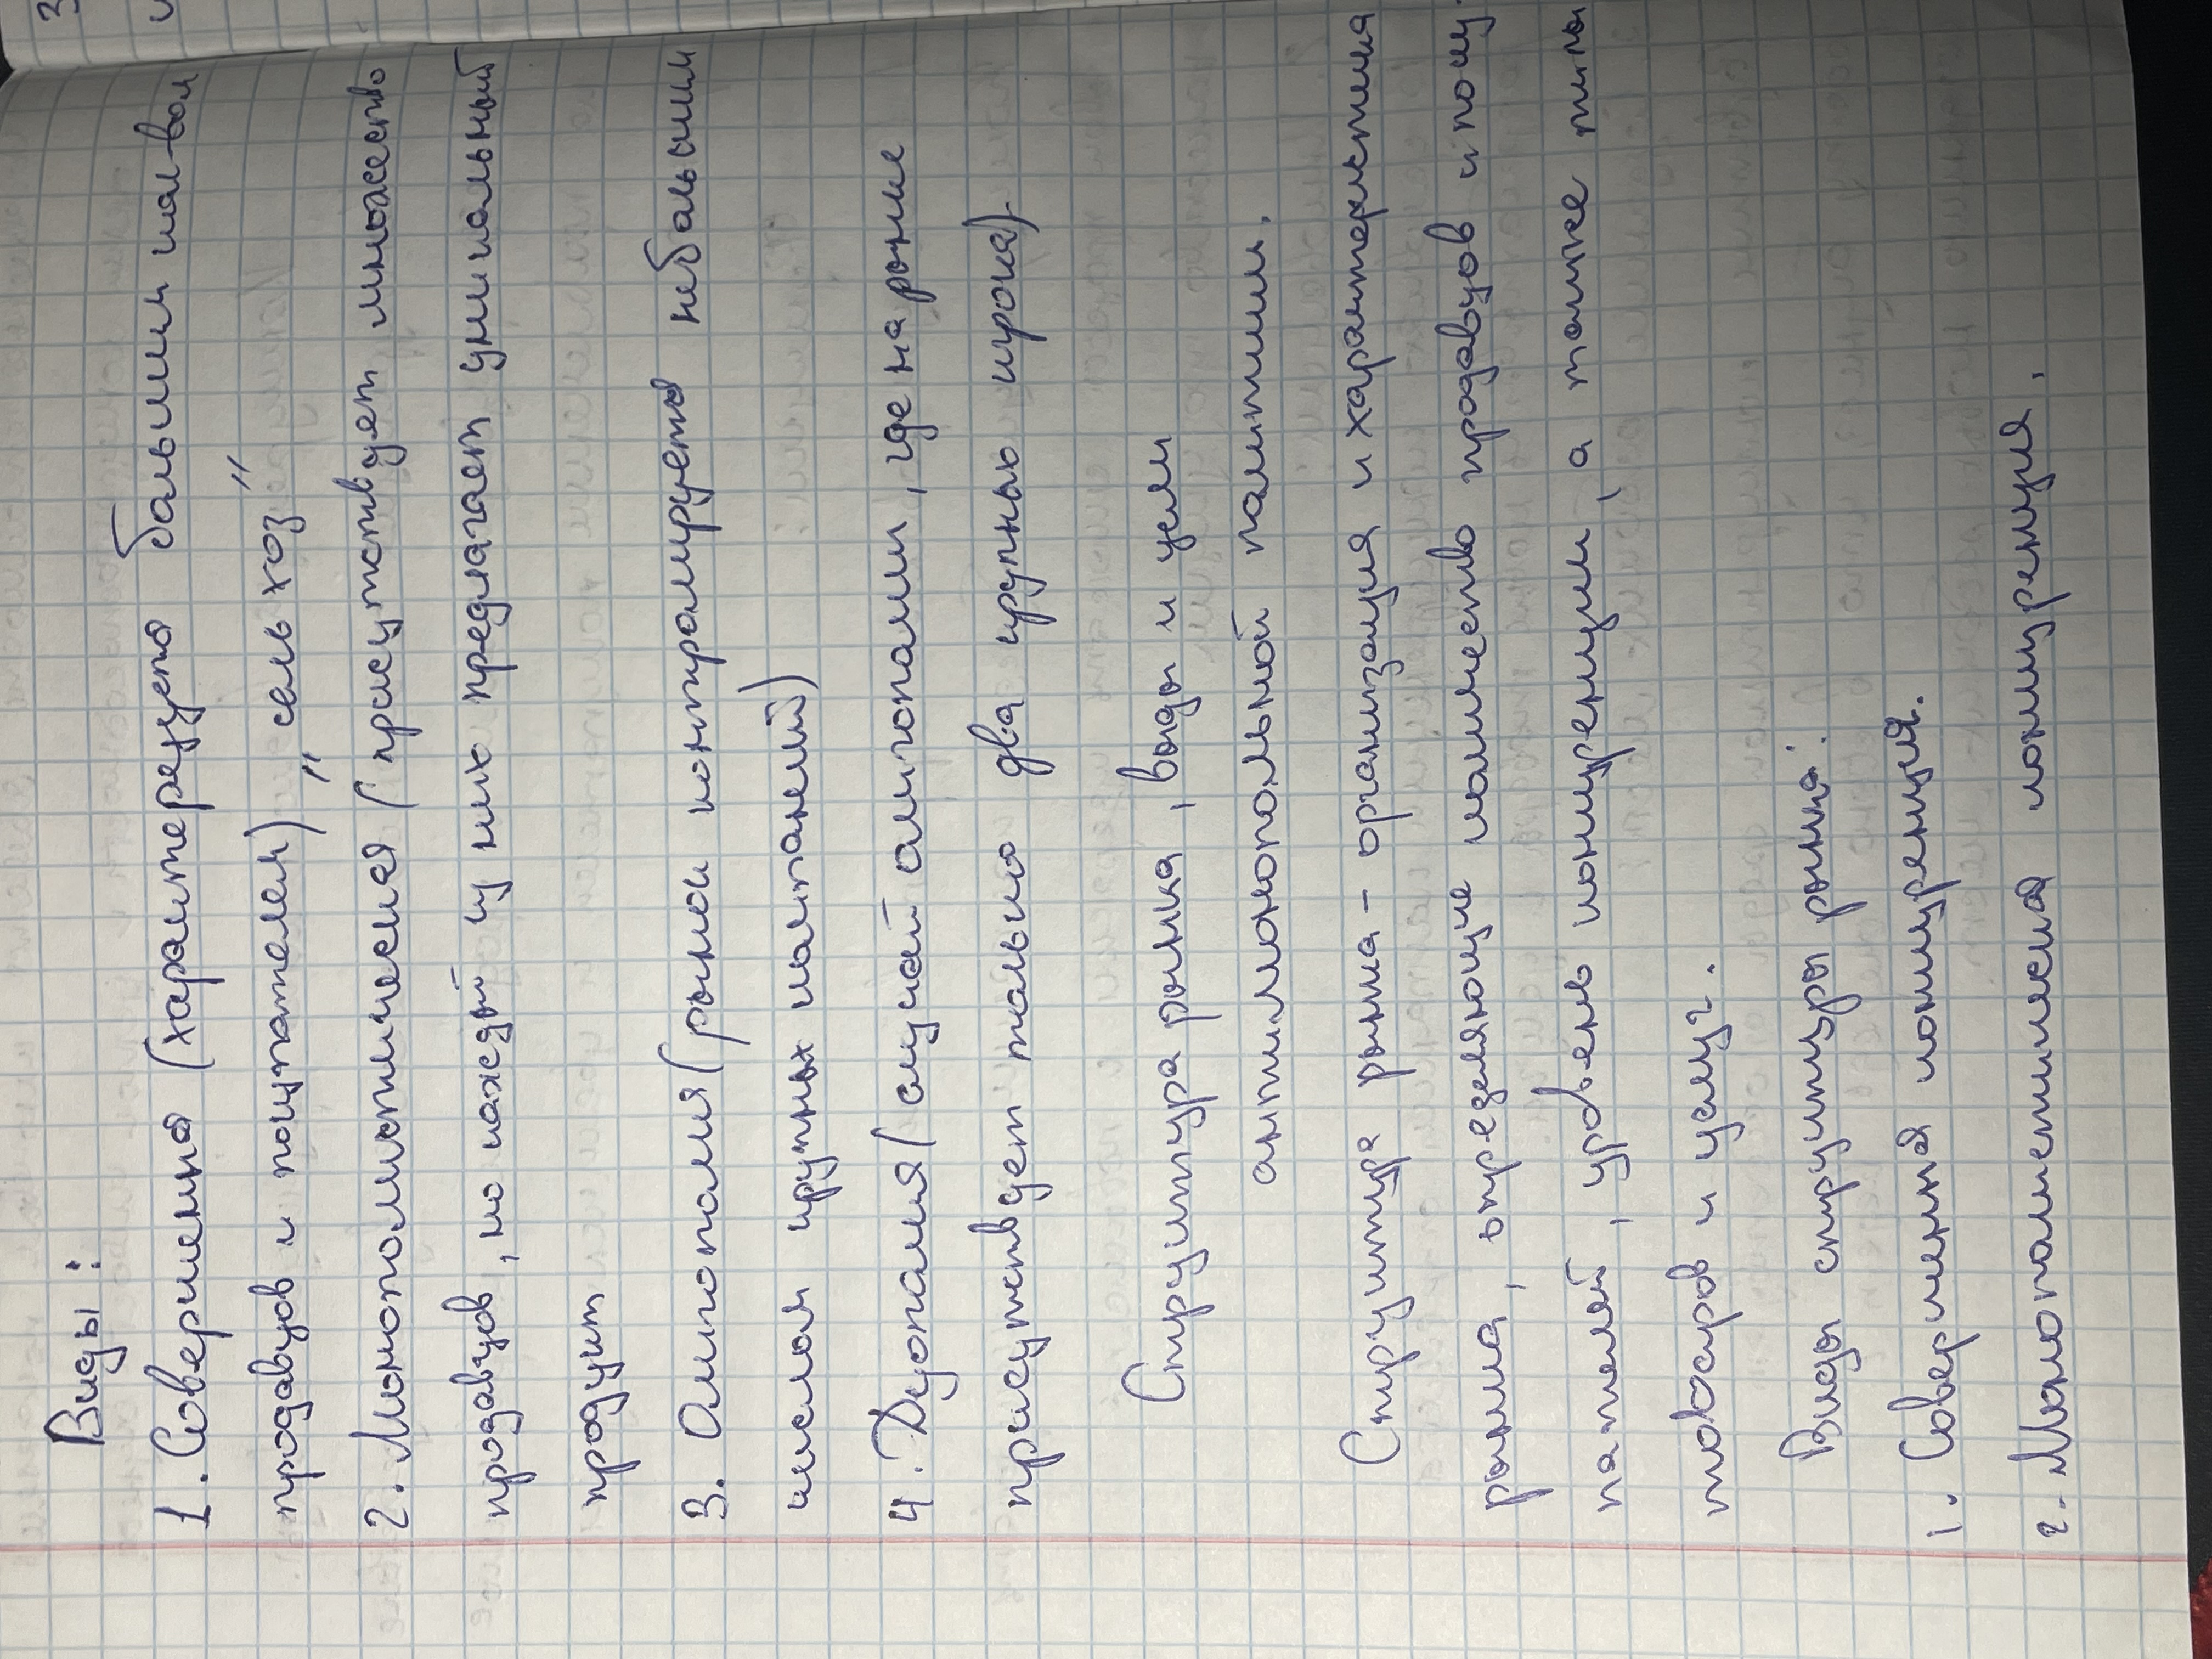 Виды:
1. Совершенная (характерезуется большим кол-вом
продавцов и покупателей) "сель хоз"
2. Монополистическая (присутствует множество
продавцов, но каждый из них предлагает уникальный
продукт
3. Олигополия (рынок контролируется небольшим
числом крупных компаний)
4. Дуополия (случай олигополии, где на рынке
присутствует только два крупных игрока)
Структура рынка, виды и цели
антимонопольной политики.
Структура рынка - организация и характеристика
рынка, определяющие количество продавцов и поку-
пателей, уровень конкуренции, а также типы
товаров и услуг.
Виды структуры рынка:
1. Совершенная конкуренция.
2. Монополистическая конкуренция.